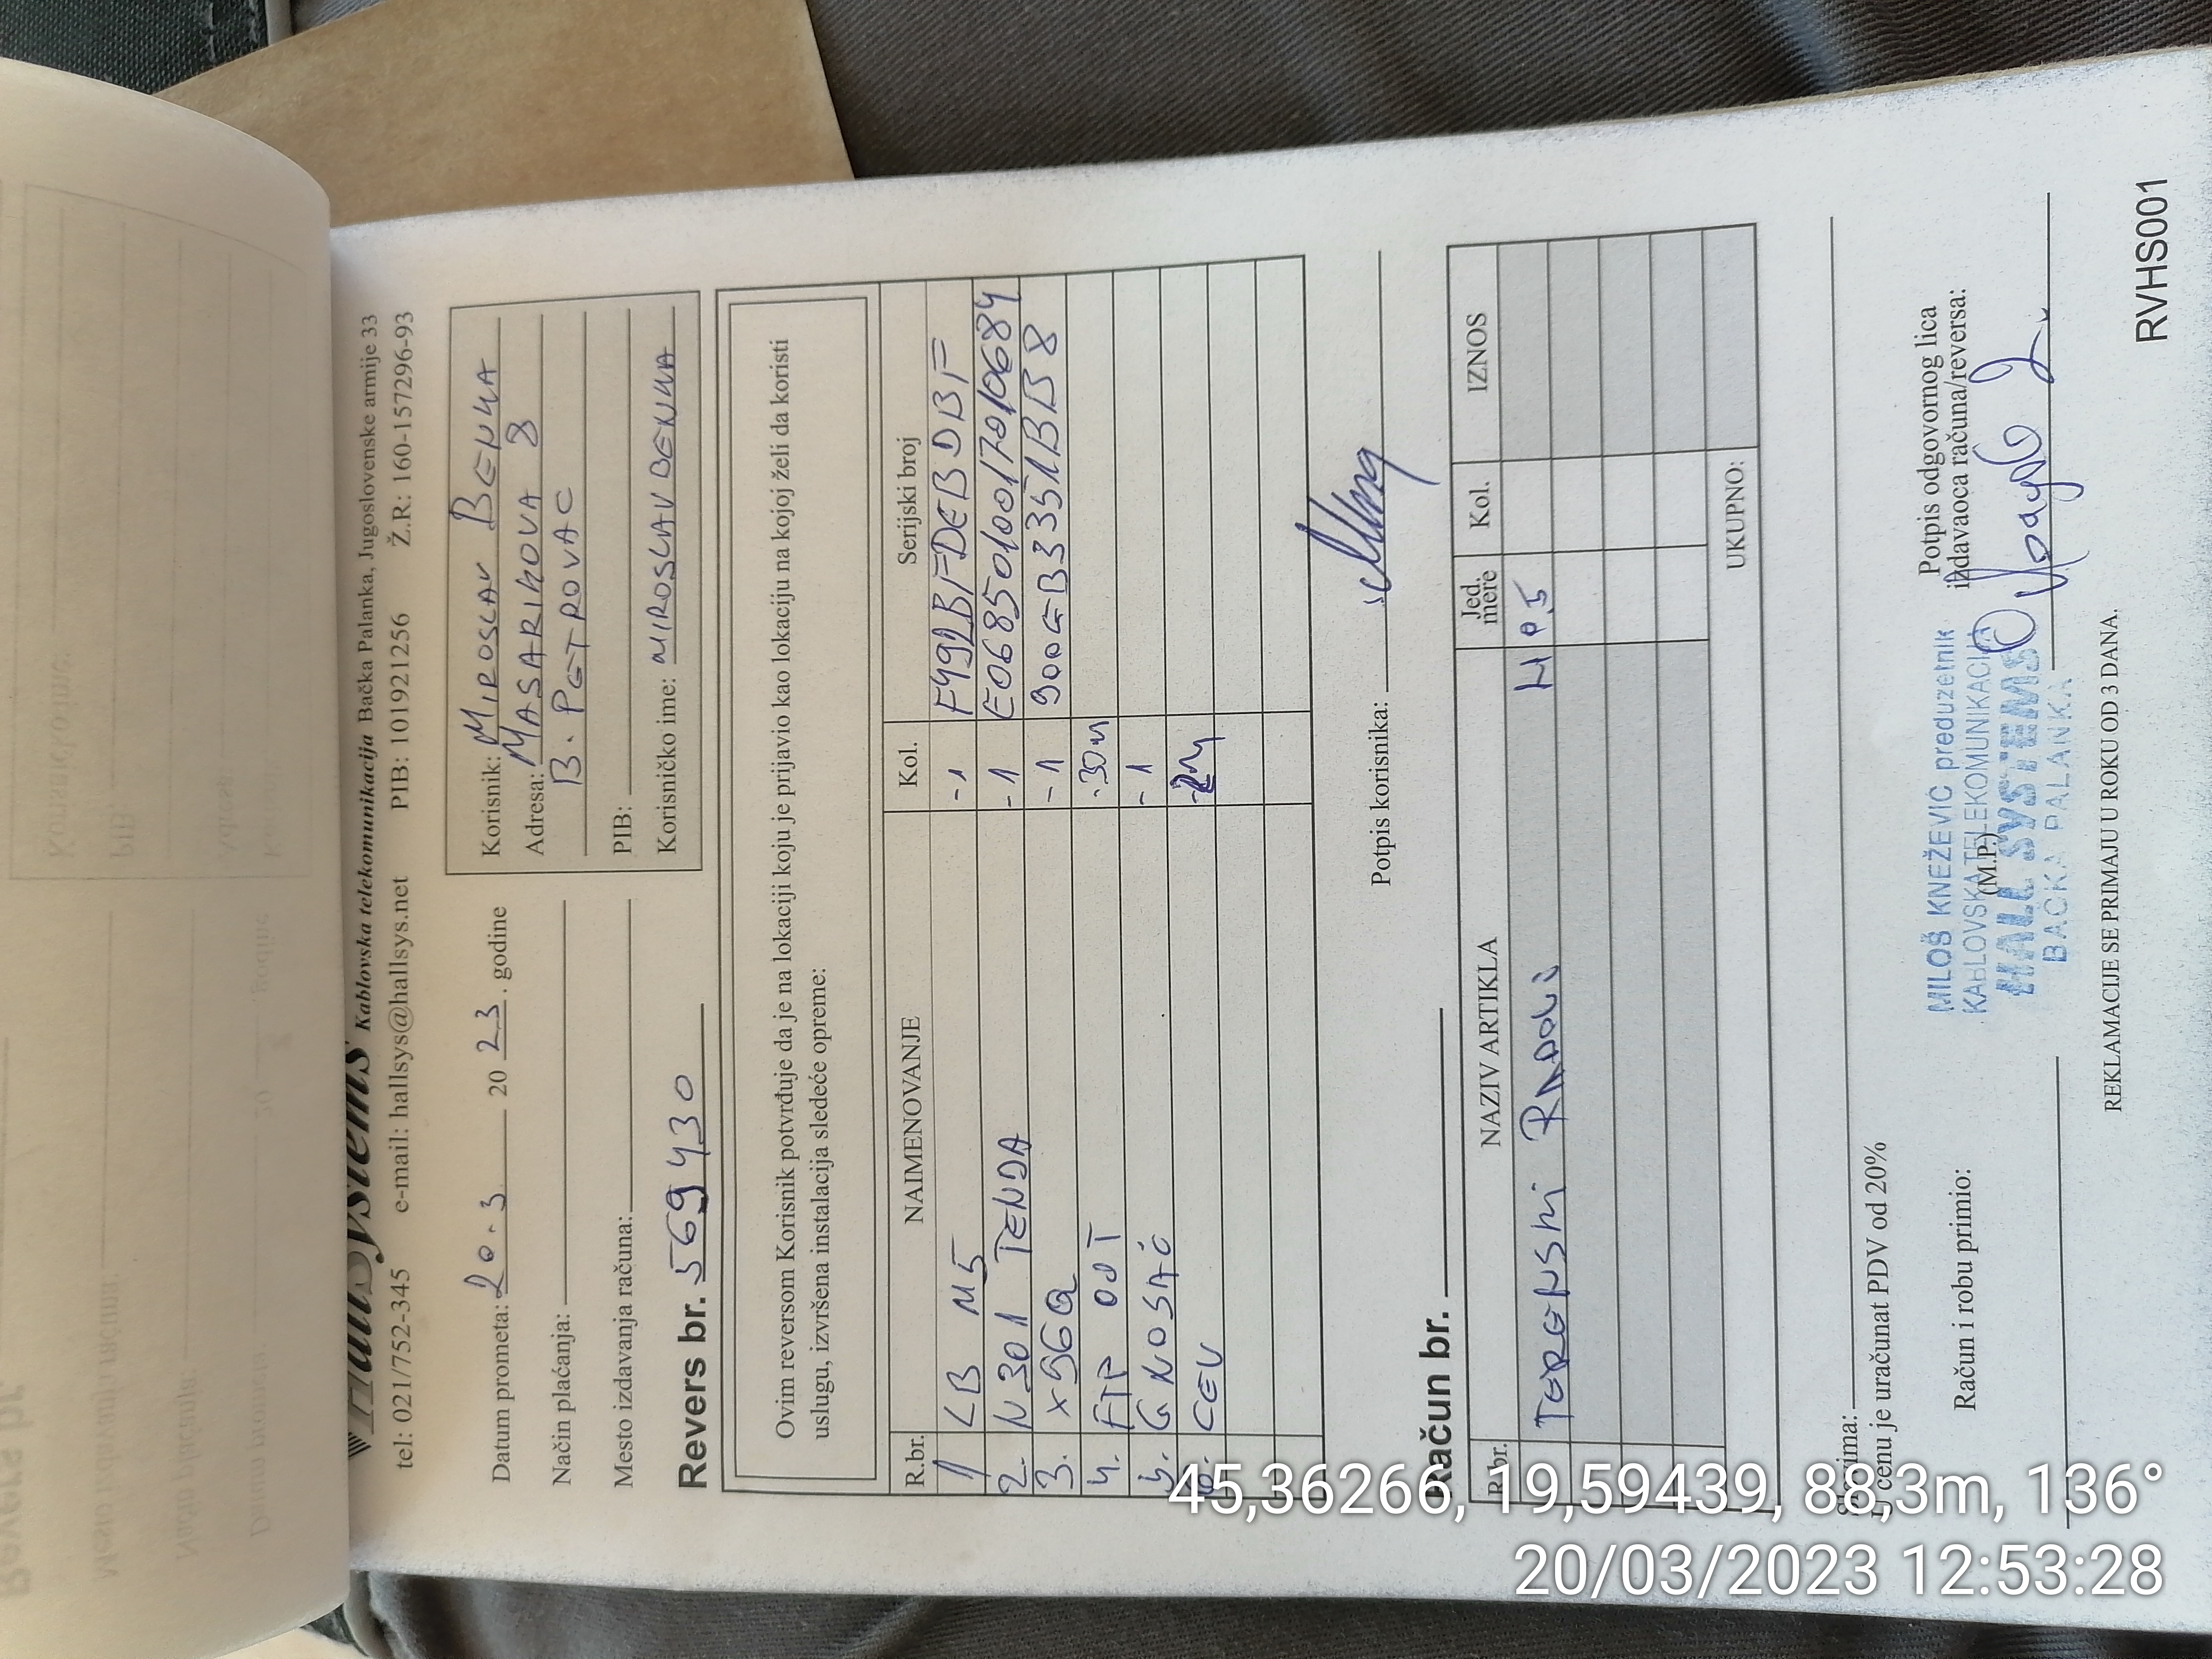 HallSystems Kablovska telekomunikacija Bačka Palanka, Jugoslovenske armije 33
tel: 021/752-345 e-mail: hallsys@hallsys.net PIB: 101921256 Ž.R: 160-157296-93
Datum prometa: 20.3 2023. godine
Način plaćanja:
Mesto izdavanja računa:
Korisnik: MIROSLAV BENKA
Adresa: MASARIKOVA 8
B. PETROVAC
PIB:
Korisničko ime: MIROSLAVBENKA
Revers br. 569430
Ovim reversom Korisnik potvrđuje da je na lokaciji koju je prijavio kao lokaciju na kojoj želi da koristi
uslugu, izvršena instalacija sledeće opreme:
R.br. NAIMENOVANJE Kol. Serijski broj
1 LB M5 -1 F492BFDEBDBF
2. N301 TENDA -1 E0685010017010684
3. x56Q -1 900EB3351BB8
4. FTP OUT .30m
5. G NOSAČ -1
6. CEV
Potpis korisnika:
Račun br.
R.br. NAZIV ARTIKLA Jed. mere Kol. IZNOS
TERENSKI RADOVI
UKUPNO:
U cenu je uračunat PDV od 20%
Račun i robu primio:
MILOŠ KNEŽEVIĆ preduzetnik
KABLOVSKA TELEKOMUNIKACIJA
(M.P.)
HALL SYSTEMS
BAČKA PALANKA
Potpis odgovornog lica
izdavaoca računa/reversa:
REKLAMACIJE SE PRIMAJU U ROKU OD 3 DANA.
RVHS001
45,36266, 19,59439, 88,3m, 136°
20/03/2023 12:53:28